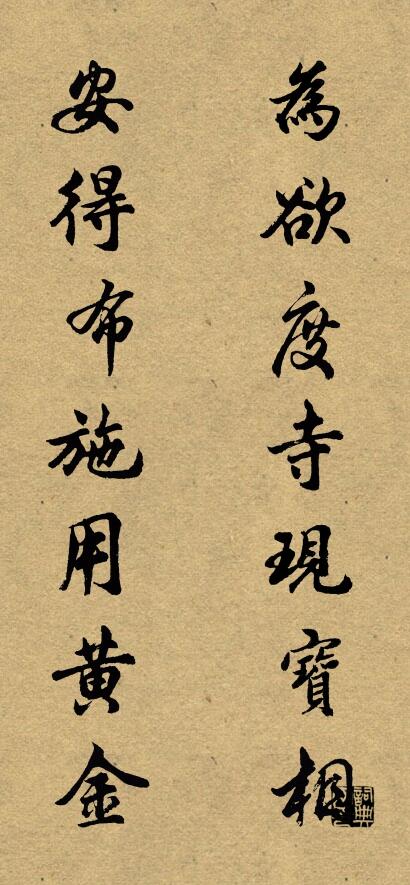 為欲度寺現寶相
安得布施用黃金